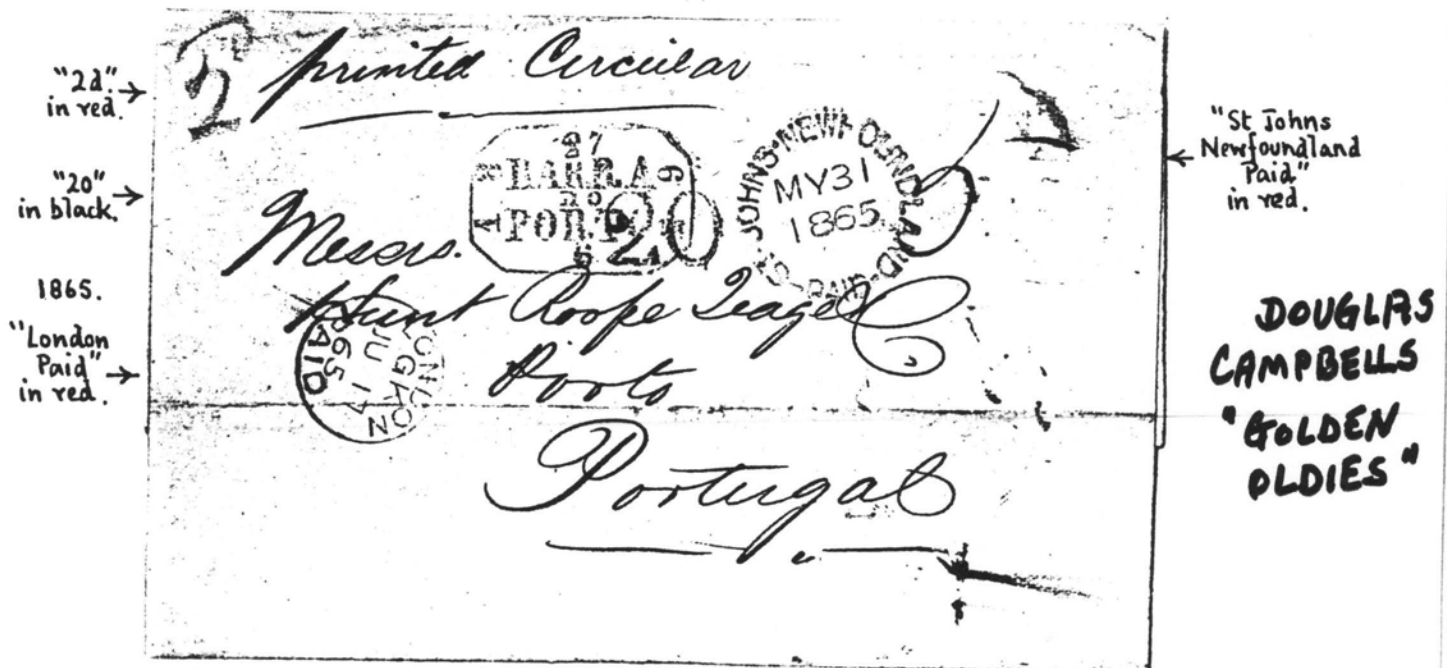 "2d"
in red.
"20"
in black.
1865.
"London
Paid"
in red.
2 printed Circular
27
BARRA
DO
PORTO
20
ST JOHNS·NEWFOUNDLAND
MY31
1865
PAID
Messrs.
Hunt Roope Teage &
Porto
Portugal
LONDON
JU 17
65
PAID
"St Johns
Newfoundland
Paid"
in red.
DOUGLAS
CAMPBELLS
"GOLDEN
OLDIES"